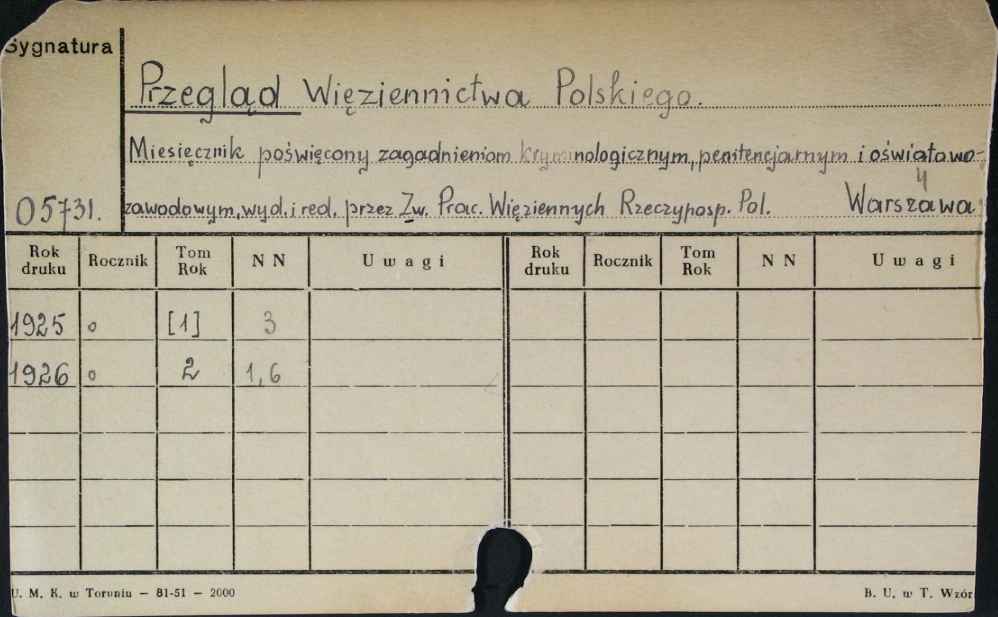 Sygnatura
Przegląd Więziennictwa Polskiego.
Miesięcznik poświęcony zagadnieniom kryminologicznym, penitencjarnym i oświatowo-
05731. zawodowym, wyd. i red. przez Zw. Prac. Więziennych Rzeczyposp. Pol. Warszawa
4
Rok druku Rocznik Tom Rok NN Uwagi Rok druku Rocznik Tom Rok NN Uwagi
1925 o [1] 3
1926 o 2 1,6
U. M. K. w Toruniu — 81-51 — 2000 B. U. w T. Wzór